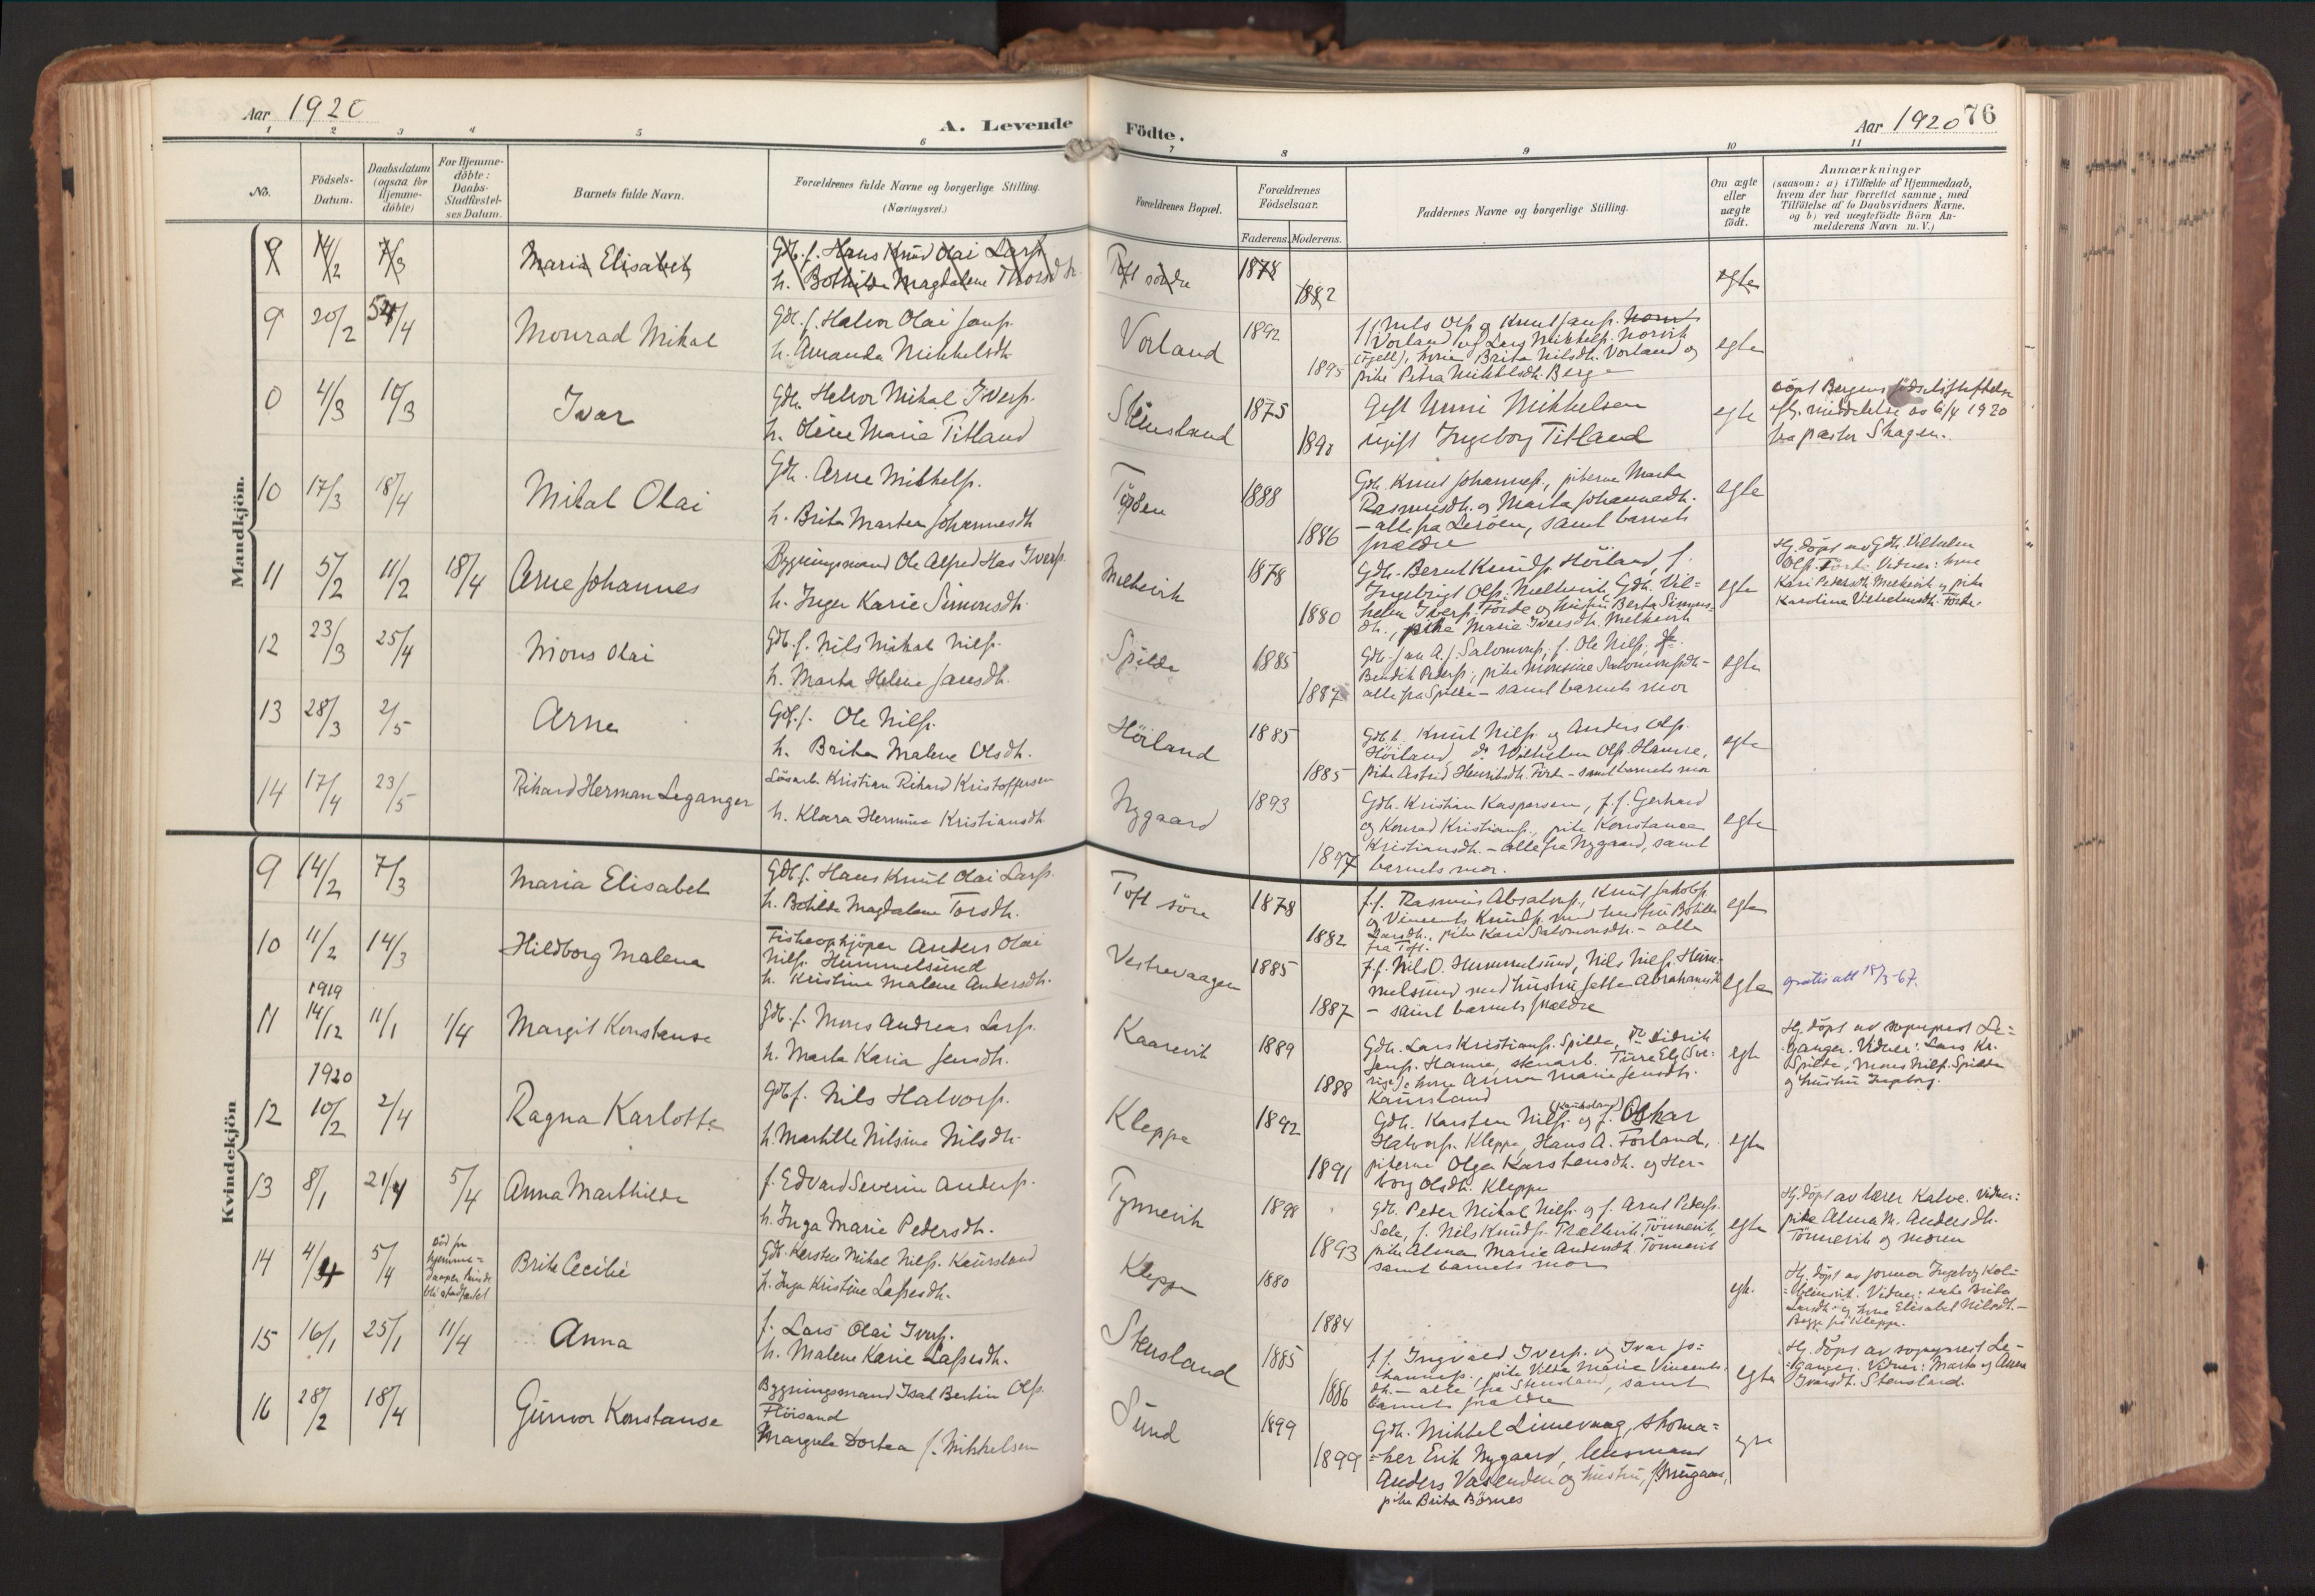 Aar 1920
A. Levende
Födte.
Aar 1920 76
1 2 3 4 5 6 7 8 9 10 11
No.
Födsels-
Datum.
Daabsdatum
(ogsaa for
Hjemme-
döbte)
For Hjemme-
döbte:
Daabs-
Stadfæstel-
ses Datum.
Barnets fulde Navn.
Forældrenes fulde Navne og borgerlige Stilling.
(Næringsvei.)
Forældrenes Bopæl.
Forældrenes
Födselsaar.
Faderens. Moderens.
Faddernes Navne og borgerlige Stilling.
Om ægte
eller
uægte
födt.
Anmærkninger
(saasom: a) i Tilfælde af Hjemmedaab,
hvem der har forrettet samme, med
Tilföielse af to Daabsvidners Navne,
og b) ved uægtefödte Börn An-
melderens Navn m. V.)
Mandkjön.
14/2 7/3 Maria Elisabet
Gdb. f. Hans Knud Olai Larss.
h. Bothilde Magdalene Thorsdtr.
Toft söndre 1878
1882
egte
9 20/2 Monrad Mikal
Gdb. f. Halvor Olai Janss.
h. Amanda Mikkelsdtr.
Vorland 1892
1895
ff Nils Ols. og Knut Janss.
Vorland og Lars Mikkels. Norvik
(Fjell), kone Brita Nilsdtr. Vorland og
pike Petra Mikkelsdtr. Berge
egte
0 4/3 10/3 Ivar
Gdb. Halvor Mikal Ivers.
h. Oline Marie Titland
Steinsland 1875
Gift Unni Mikkelsen
ugift Ingeborg Titland
egte
döpt Bergens födselsstiftelse
eftr. meddelelse av 6/4 1920
fra pastor Skagen.
10 17/3 18/4 Mikal Olai
Gdb. Arne Mikkels.
h. Brita Martea Johannesdtr.
1888
1886
Gdb. Knut Johanness., pikerne Marta
Rasmusdtr. og Marta Johannesdtr.
– alle fra Leröen, samt barnets
forældre
egte
11 5/2 11/2 18/4 Arne Johannes
Bygningsmand Ole Alfred Ivers.
h. Inger Karie Simonsdtr.
Milkevik 1878
1880
Gdb. Bernt Knuds. Höiland, f.
Ingebrigt Ols. Melkevik, Gdb. Vil=
helm Ivers. Förde og hustru Berta Simons=
dtr., pike Marie Iversdtr. Melkevik
egte
Hj. döpt av Gdb. Vilhelm
Ols. Förde. Vidner: kone
Kari Pedersdtr. Melkevik og pike
Karoline Vilhelmsdtr. Förde.
12 23/3 25/4 Mons Olai
Gdb. f. Nils Mikal Nils.
h. Marta Helene Jansdtr.
Spilde 1885
1887
Gdb. Jan A. f. Salomons., f. Ole Nils.,
Bendik Peders., pike Monsine Salomonsdtr –
alle fra Spilde – samt barnets mor
egte
13 28/3 2/5 Arne
Gdb. f. Ole Nils.
h. Brita Malene Olsdtr.
Höiland 1885
1885
Gdb. f. Knut Nils. og Anders Ols.
Höiland, do Vilhelm Ols. Hamre,
pike Astrid Henriksdtr. Förde – samt barnets mor
egte
14 17/4 23/5 Rikard Herman Leganger
Lösarb. Kristian Rikard Kristoffersen
h. Klara Hermine Kristiansdtr.
Nygaard 1893
1897
Gdb. Kristian Kaspersen, f. f. Gerhard
og Konrad Kristians., pike Konstance
Kristiansdtr. – alle fra Nygaard, samt
barnets mor.
egte
Kvindekjön
9 14/2 7/3 Maria Elisabet
Gdb. f. Hans Knut Olai Larss.
h. Botilde Magdalene Torsdtr.
Toft söre 1878
1882
f. f. Rasmus Absalons., Knut Jakobs.
og Vincents Knuds. med hustru Botilde
Larsdtr., pike Kari Salomonsdtr. – alle
fra Toft.
egte
10 11/2 14/3 Hildborg Malena
Fiskeopkjöper Anders Olai
Nils. Hummelsund
h. Kristine Malene Andersdtr.
Vestrevaagen 1885
1887
f. f. Nils O. Hummelsund, Nils Nils. Hum=
melsund med hustru Jette Abrahamsdtr.
– samt barnets forældre
egte
gratis att 18/3-67.
1919
11 14/12 11/1 1/4 Margit Konstanse
Gdb. f. Mons Andreas Larss.
h. Marta Karia Jensdtr.
Kaarevik 1889
1888
Gdb. Lars Kristians. Spilde, do Didrik
Jens. Hamre, stenarb. Ture Elg (Sve=
rige), kone Anna Marie Jensdtr.
Kausland
egte
Hj. döpt av sogneprest Le=
ganger. Vidner: Lars Kr.
Spilde, Mons Nils. Spilde
og hustru Ingeborg.
1920
12 10/2 2/4 Ragna Karlotte
Gdb. f. Nils Halvors.
h. Martille Nilsine Nilsdtr.
Kleppe 1892
1891
Gdb. Karsten Nils. (Kausland) og f. Oskar
Halvors. Kleppe, Hans A. Forland,
pikerne Olga Karstensdtr. og Her=
borg Olsdtr. Kleppe
egte
13 8/1 21/4 5/4 Anna Marthilde
f. Edvard Severin Anders.
h. Inga Marie Pedersdtr.
Tynnevik 1898
1893
Gdb. Peder Mikal Nils. og f. Arent Peders.
Sele, f. Nils Knuds. Trællevik, Tönnevik,
pike Alma Marie Andersdtr. Tönnevik
samt barnets mor
egte
Hj. döpt av lærer Kalve. Vidner:
pike Alma M. Andersdtr.
Tönnevik og moren
14 4/4 5/4
död før
hjemme=
daapen kunde
bli stadfæstet
Brite Cecilie
Gdb. Karsten Mikal Nils. Kausland
h. Inga Kristine Lassesdtr.
Kleppe 1880
1884
egte
Hj. döpt av jormor Ingeborg Kal=
Vidner: enke Brita
Larsdtr. og kone Elisabet Nilsdtr. –
Begge fra Kleppe.
15 16/1 25/1 11/4 Anna
f. Lars Olai Ivers.
h. Malene Karie Lassesdtr.
Stensland 1885
1886
f. f. Ingvald Ivers. og Ivar Jo=
hanness., pike Marie Vincents=
dtr. – alle fra Stensland, samt
barnets forældre
egte
Hj. döpt av sogneprest Le=
ganger. Vidner: Marta og Anna
Ivarsdtr. Stensland.
16 28/2 18/4 Gunvor Konstanse
Bygningsmand Isak Bertin Ols.
Flöisand
Margrete Dortea f. Mikkelsen
Sund 1899
1899
Gdb. Mikkel Limevaag, skoma=
=ker Erik Nygaard, lensmand
Anders Vasenden og hustru,
pike Brita Börnes